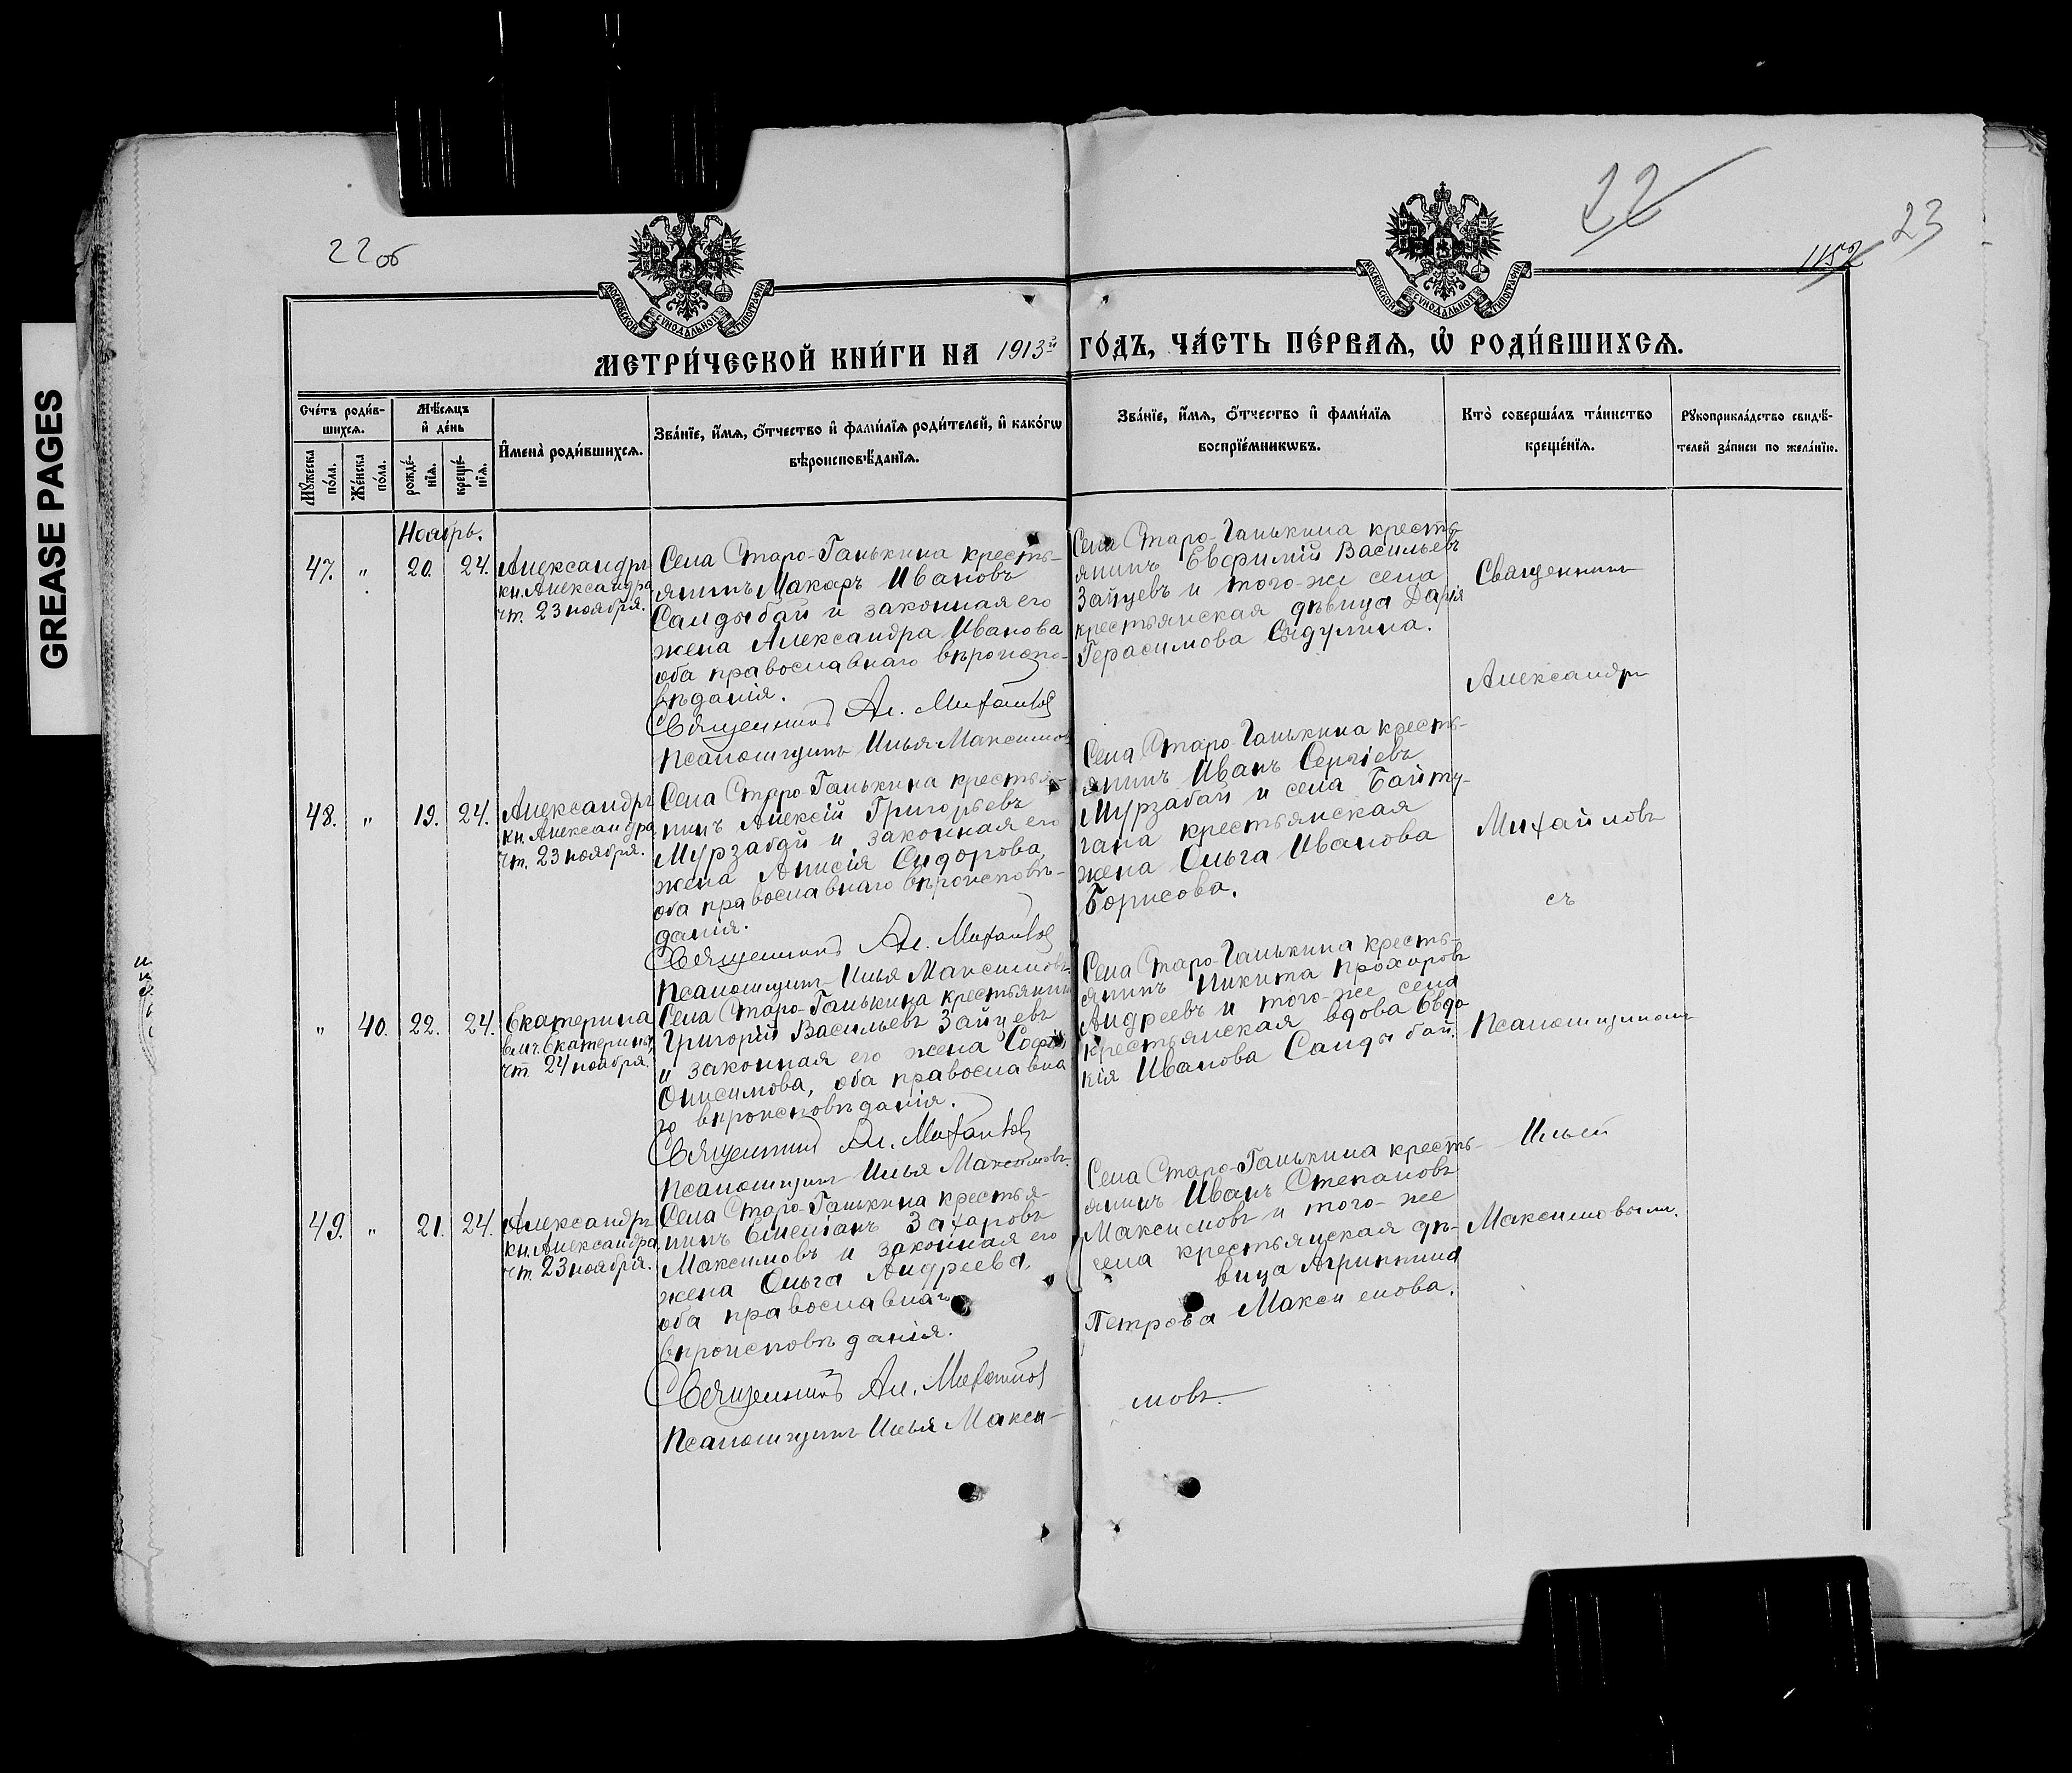 GREASE PAGES
22 об
22
1152
23
МОСКОВСКОЙ СѴНОДАЛЬНОЙ ТИПОГРАФІИ
МОСКОВСКОЙ СѴНОДАЛЬНОЙ ТИПОГРАФІИ
МЕТРИ́ЧЕСКОЙ КНИ́ГИ НА 1913й ГО́ДЪ, ЧА́СТЬ ПЕ́РВАѦ, Ѡ҆ РОДИ́ВШИХСѦ.
Сче́тъ роди́в-
шихсѧ.
Мѣ́сѧцъ
и҆ де́нь
Мꙋ́жеска
по́ла.
Же́нска
по́ла.
рожде́-
нїѧ.
креще́-
нїѧ.
И҆мена̀ роди́вшихсѧ.
Зва́нїе, и҆́мѧ, ѻ҆́тчество и҆ фами́лїѧ роди́телей, и҆ како́гѡ
вѣ́роисповѣ́данїѧ.
Зва́нїе, и҆́мѧ, ѻ҆́тчество и҆ фами́лїѧ
воспрїе́мникѡвъ.
Кто̀ соверша́лъ та́инство
креще́нїѧ.
Рꙋкоприкла́дство свидѣ́-
телей за́писи по жела́нїю.
Ноябрь.
47. " 20. 24.
Александръ
кн. Александра
чт. 23 ноября.
Села Старо-Ганькина кресть-
янинъ Макаръ Ивановъ
Сандыбай и законная его
жена Александра Иванова
оба православнаго вѣроиспо-
вѣданія.
Священникъ Ал. Михайловъ
Псаломщикъ Илья Максимовъ
Села Старо-Ганькина кресть-
янинъ Евфимій Васильевъ
Зайцевъ и того-же села
крестьянская дѣвица Дарія
Герасимова Сидулина.
Священникъ
Александръ
Михайловъ
съ
Псаломщикомъ
Ильей
Максимовымъ.
48. " 19. 24.
Александръ
кн. Александра
чт. 23 ноября.
Села Старо-Ганькина крестья-
нинъ Алексій Григорьевъ
Мурзабай и законная его
жена Анисія Сидорова,
оба православнаго вѣроисповѣ-
данія.
Священникъ Ал. Михайловъ
Псаломщикъ Илья Максимовъ.
Села Старо-Ганькина кресть-
янинъ Иванъ Сергіевъ
Мурзабай и села Байту-
гана крестьянская
жена Ольга Иванова
Борисова.
" 40. 22. 24.
Екатерина
влмч. Екатерины,
чт. 24 ноября.
Села Старо-Ганькина крестьянинъ
Григорій Васильевъ Зайцевъ
и законная его жена Софія
Онисимова, оба православна
го вѣроисповѣданія.
Священникъ Ал. Михайловъ
Псаломщикъ Илья Максимовъ.
Села Старо-Ганькина кресть-
янинъ Никита Прохоровъ
Андреевъ и того-же села
крестьянская вдова Евдо
кія Иванова Сандыбай.
49. " 21. 24.
Александръ
кн. Александра,
чт. 23 ноября.
Села Старо-Ганькина крестья-
нинъ Емеліанъ Захаровъ
Максимовъ и законная его
жена Ольга Андреева,
оба православнаго
вѣроисповѣданія.
Священникъ Ал. Михайловъ
Псаломщикъ Илья Макси-
мовъ.
Села Старо-Ганькина кресть-
янинъ Иванъ Степановъ
Максимовъ и того-же
села крестьянская дѣ-
вица Агриппина
Петрова Максимова.